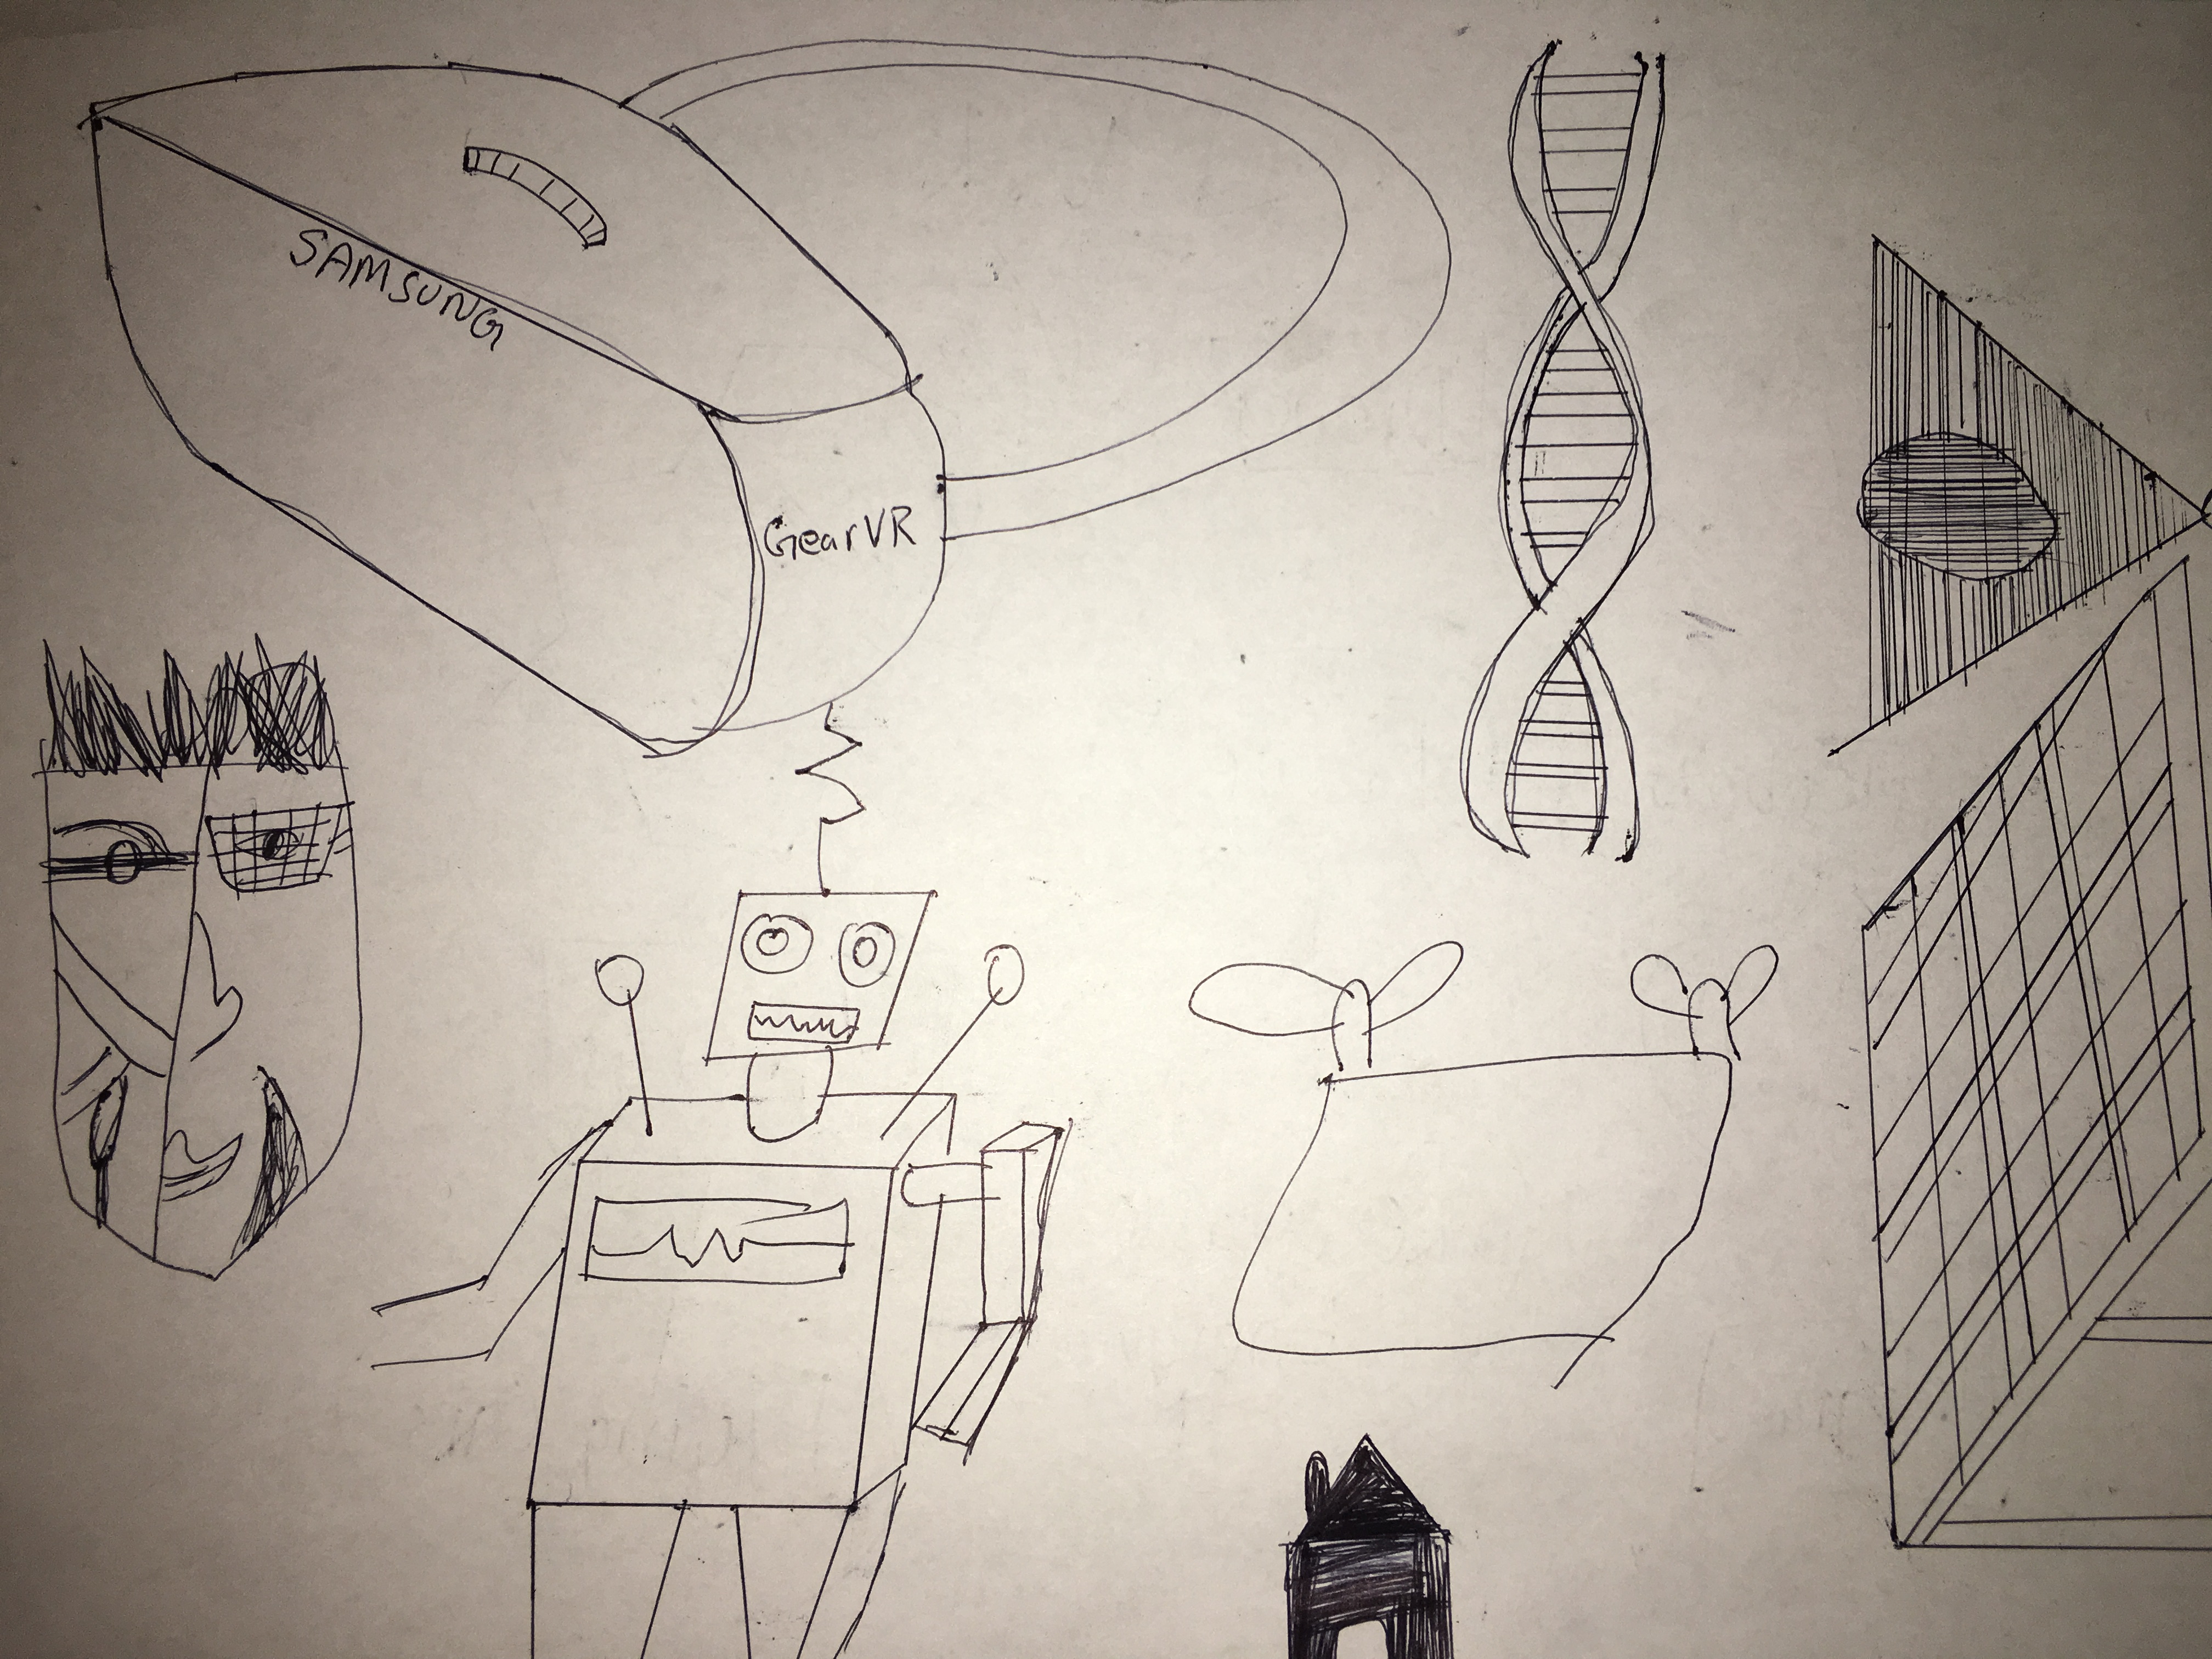 SAMSUNG
GearVR